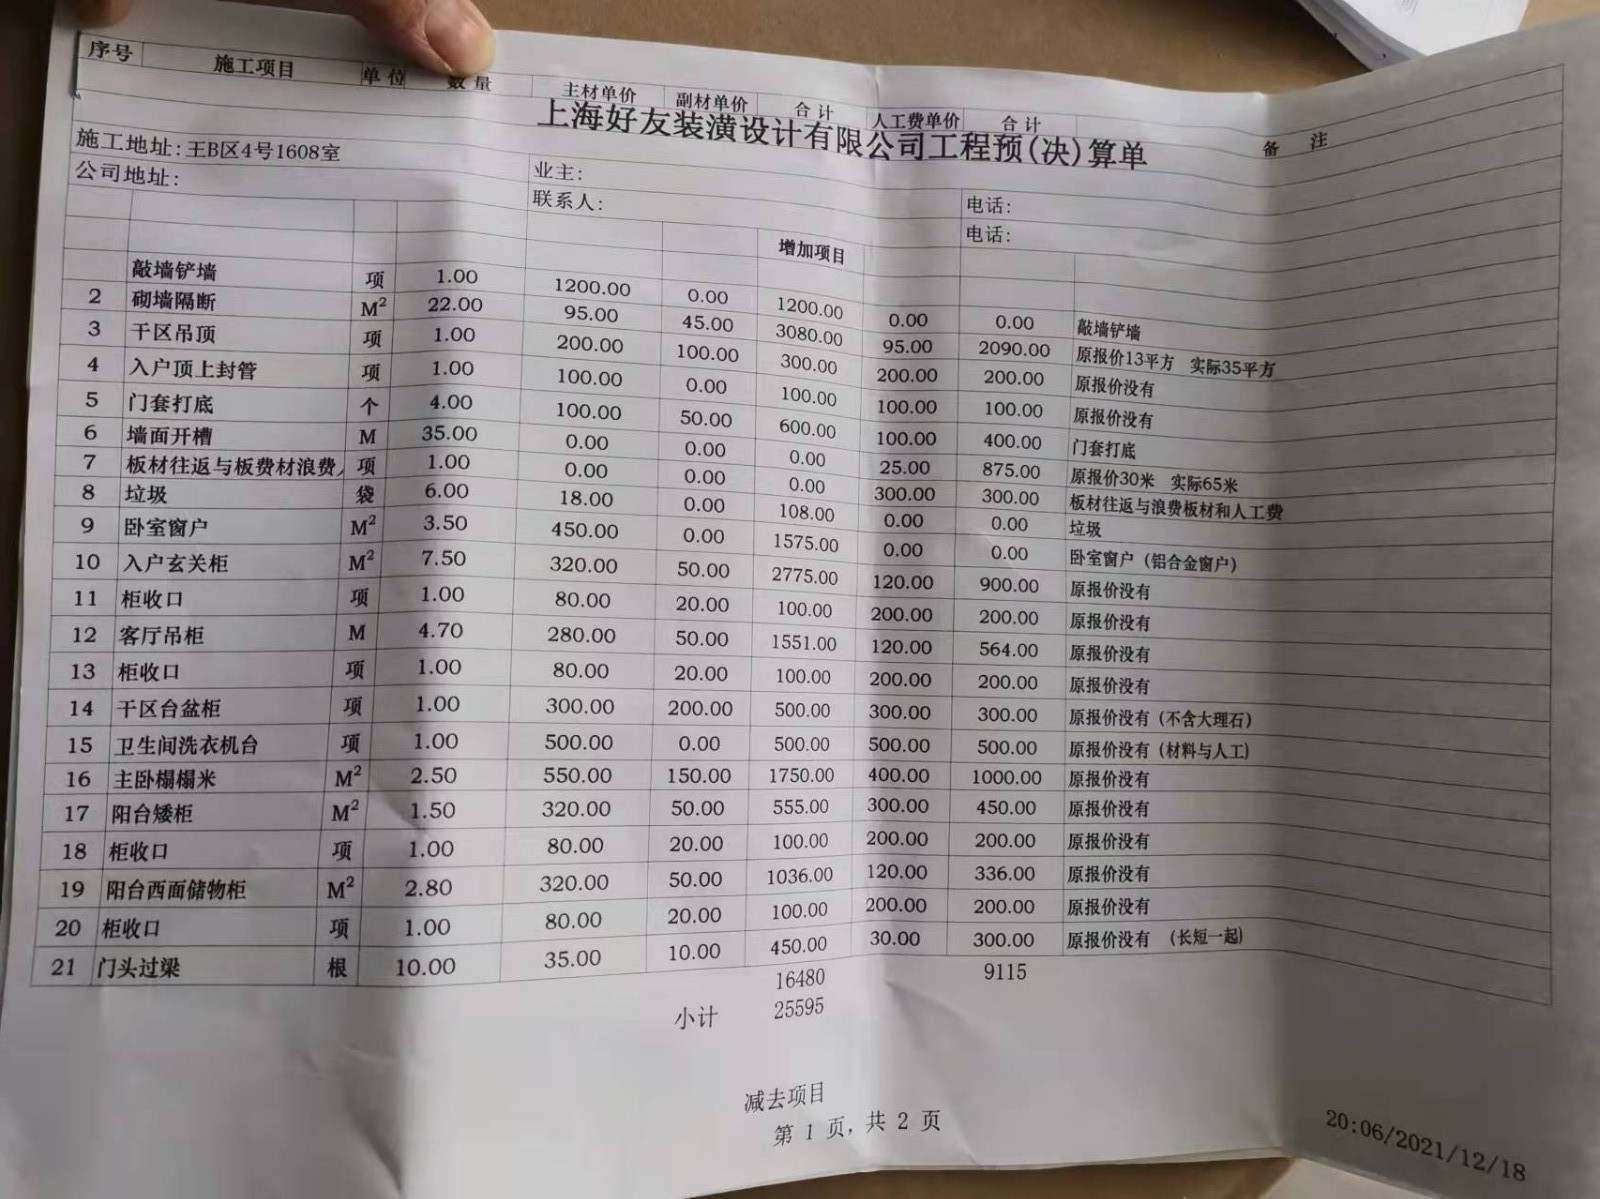 序号 施工项目 单位 数量 主材单价 副材单价 合计 人工费单价 合计 备注
上海好友装潢设计有限公司工程预(决)算单
施工地址:王B区4号1608室 业主: 电话:
公司地址: 联系人: 电话:
增加项目
敲墙铲墙 项 1.00 1200.00 0.00 1200.00 0.00 0.00 敲墙铲墙
2 砌墙隔断 M² 22.00 95.00 45.00 3080.00 95.00 2090.00 原报价13平方 实际35平方
3 干区吊顶 项 1.00 200.00 100.00 300.00 200.00 200.00 原报价没有
4 入户顶上封管 项 1.00 100.00 0.00 100.00 100.00 100.00 原报价没有
5 门套打底 个 4.00 100.00 50.00 600.00 100.00 400.00 门套打底
6 墙面开槽 M 35.00 0.00 0.00 0.00 25.00 875.00 原报价30米 实际65米
7 板材往返与板费材浪费 项 1.00 0.00 0.00 0.00 300.00 300.00 板材往返与浪费板材和人工费
8 垃圾 袋 6.00 18.00 0.00 108.00 0.00 0.00 垃圾
9 卧室窗户 M² 3.50 450.00 0.00 1575.00 0.00 0.00 卧室窗户(铝合金窗户)
10 入户玄关柜 M² 7.50 320.00 50.00 2775.00 120.00 900.00 原报价没有
11 柜收口 项 1.00 80.00 20.00 100.00 200.00 200.00 原报价没有
12 客厅吊柜 M 4.70 280.00 50.00 1551.00 120.00 564.00 原报价没有
13 柜收口 项 1.00 80.00 20.00 100.00 200.00 200.00 原报价没有
14 干区台盆柜 项 1.00 300.00 200.00 500.00 300.00 300.00 原报价没有(不含大理石)
15 卫生间洗衣机台 项 1.00 500.00 0.00 500.00 500.00 500.00 原报价没有(材料与人工)
16 主卧榻榻米 M² 2.50 550.00 150.00 1750.00 400.00 1000.00 原报价没有
17 阳台矮柜 M² 1.50 320.00 50.00 555.00 300.00 450.00 原报价没有
18 柜收口 项 1.00 80.00 20.00 100.00 200.00 200.00 原报价没有
19 阳台西面储物柜 M² 2.80 320.00 50.00 1036.00 120.00 336.00 原报价没有
20 柜收口 项 1.00 80.00 20.00 100.00 200.00 200.00 原报价没有
21 门头过梁 根 10.00 35.00 10.00 450.00 30.00 300.00 原报价没有 (长短一起)
16480 9115
小计 25595
减去项目
第 1 页,共 2 页
20:06/2021/12/18